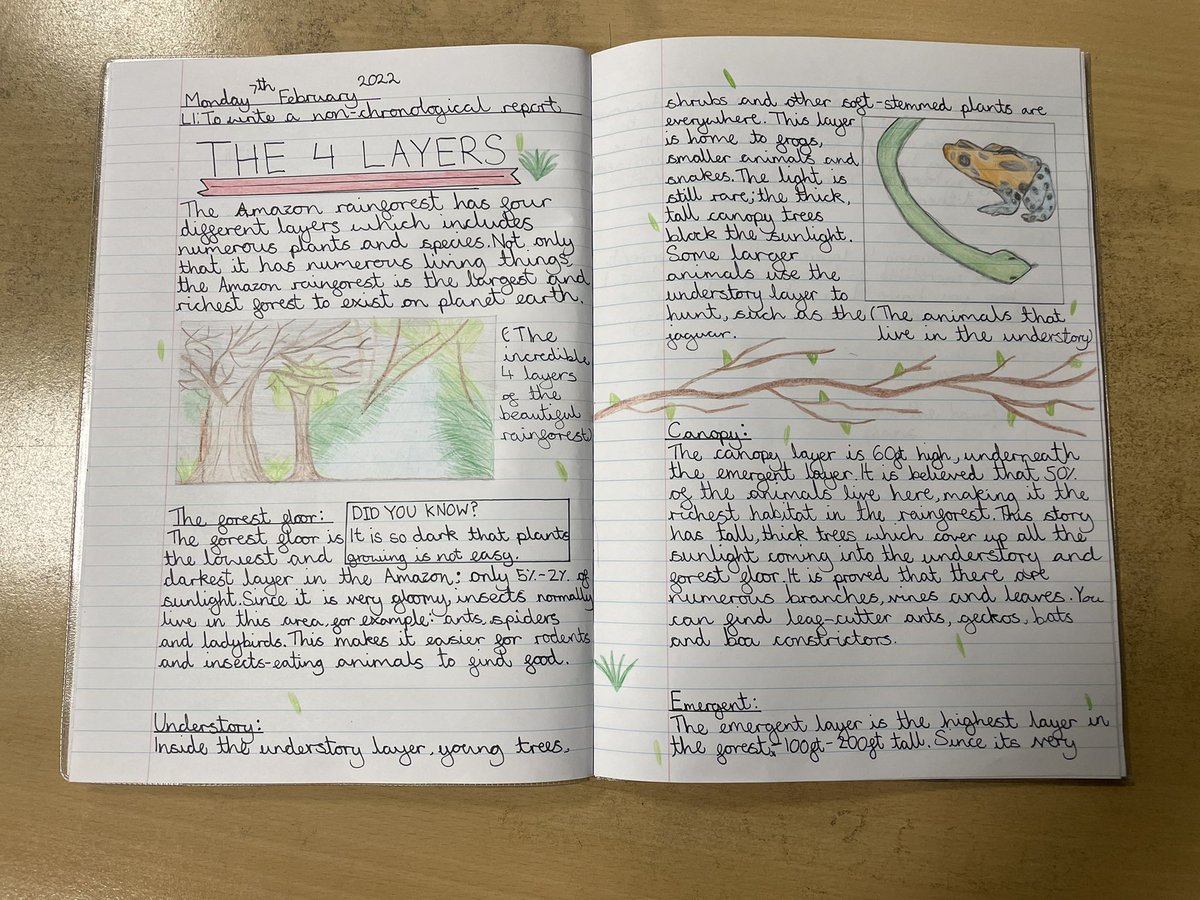 Monday 7th February 2022
LI: To write a non-chronological report
THE 4 LAYERS
The Amazon rainforest has four
different layers which includes
numerous plants and species. Not only
that it has numerous living things,
the Amazon rainforest is the largest and
richest forest to exist on planet earth.
(The
incredible
4 layers
of the
beautiful
rainforest)
The forest floor:
DID YOU KNOW?
It is so dark that plants
growing is not easy.
The forest floor is
the lowest and
darkest layer in the Amazon: only 5%-2% of
sunlight. Since it is very gloomy, insects normally
live in this area, for example: ants, spiders
and ladybirds. This makes it easier for rodents
and insects-eating animals to find food.
Understory:
Inside the understory layer, young trees,
shrubs and other soft-stemmed plants are
everywhere. This layer
is home to frogs,
smaller animals and
snakes. The light is
still rare; the thick,
tall canopy trees
block the sunlight.
Some larger
animals use the
understory layer to
hunt, such as the
jaguar.
(The animals that
live in the understory)
Canopy:
The canopy layer is 60ft high, underneath
the emergent layer. It is believed that 50%
of the animals live here, making it the
richest habitat in the rainforest. This story
has tall, thick trees which cover up all the
sunlight coming into the understory and
forest floor. It is proved that there are
numerous branches, vines and leaves. You
can find leaf-cutter ants, geckos, bats
and boa constrictors.
Emergent:
The emergent layer is the highest layer in
the forest,-100ft-200ft tall. Since its very